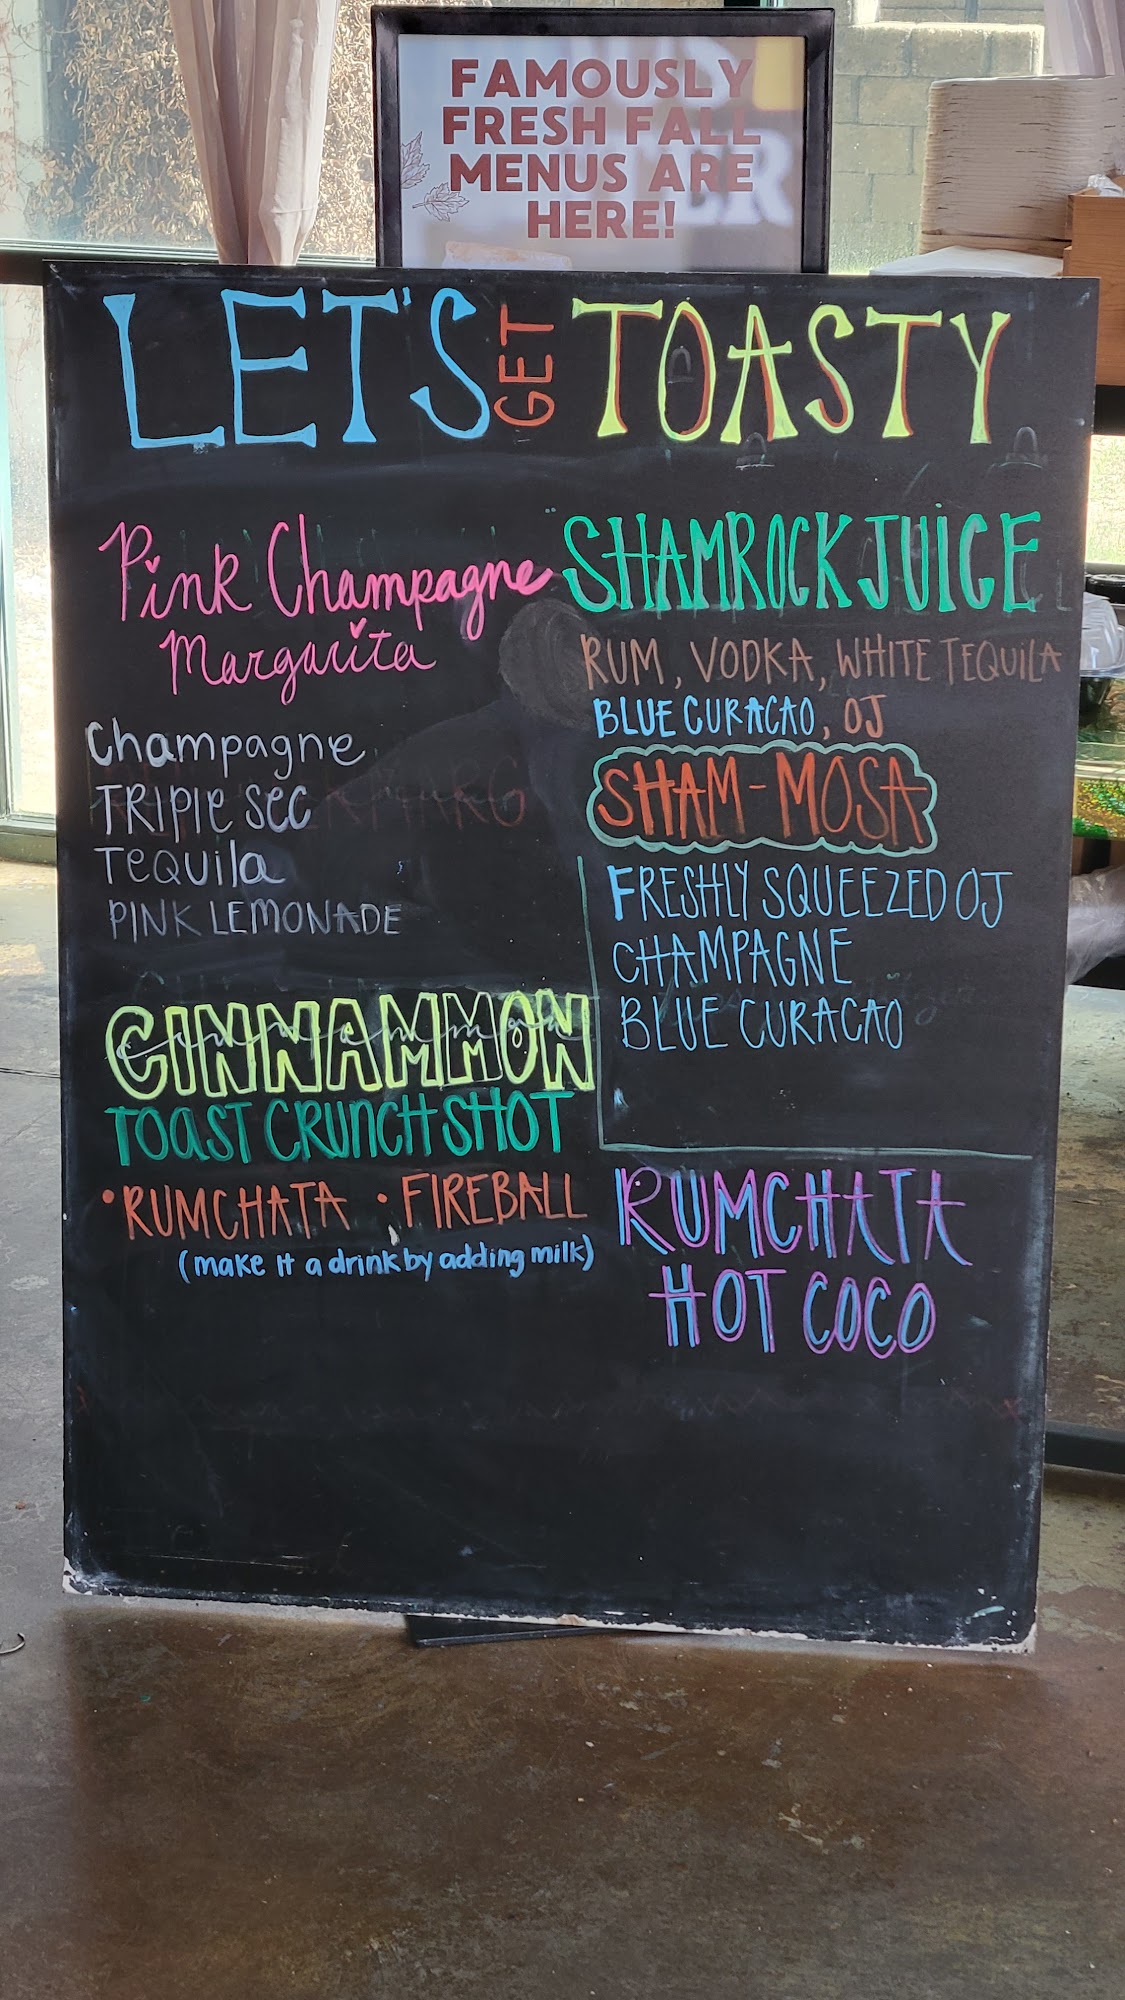 FAMOUSLY
FRESH FALL
MENUS ARE
HERE!
LET'S GET TOASTY
Pink Champagne
Margarita
Champagne
TRIPLE SEC
TEQUILA
PINK LEMONADE
CINNAMMON
TOAST CRUNCH SHOT
• RUMCHATA • FIREBALL
(make it a drink by adding milk)
SHAMROCK JUICE
RUM, VODKA, WHITE TEQUILA
BLUE CURACAO, OJ
SHAM-MOSA
FRESHLY SQUEEZED OJ
CHAMPAGNE
BLUE CURACAO
RUMCHATA
HOT COCO